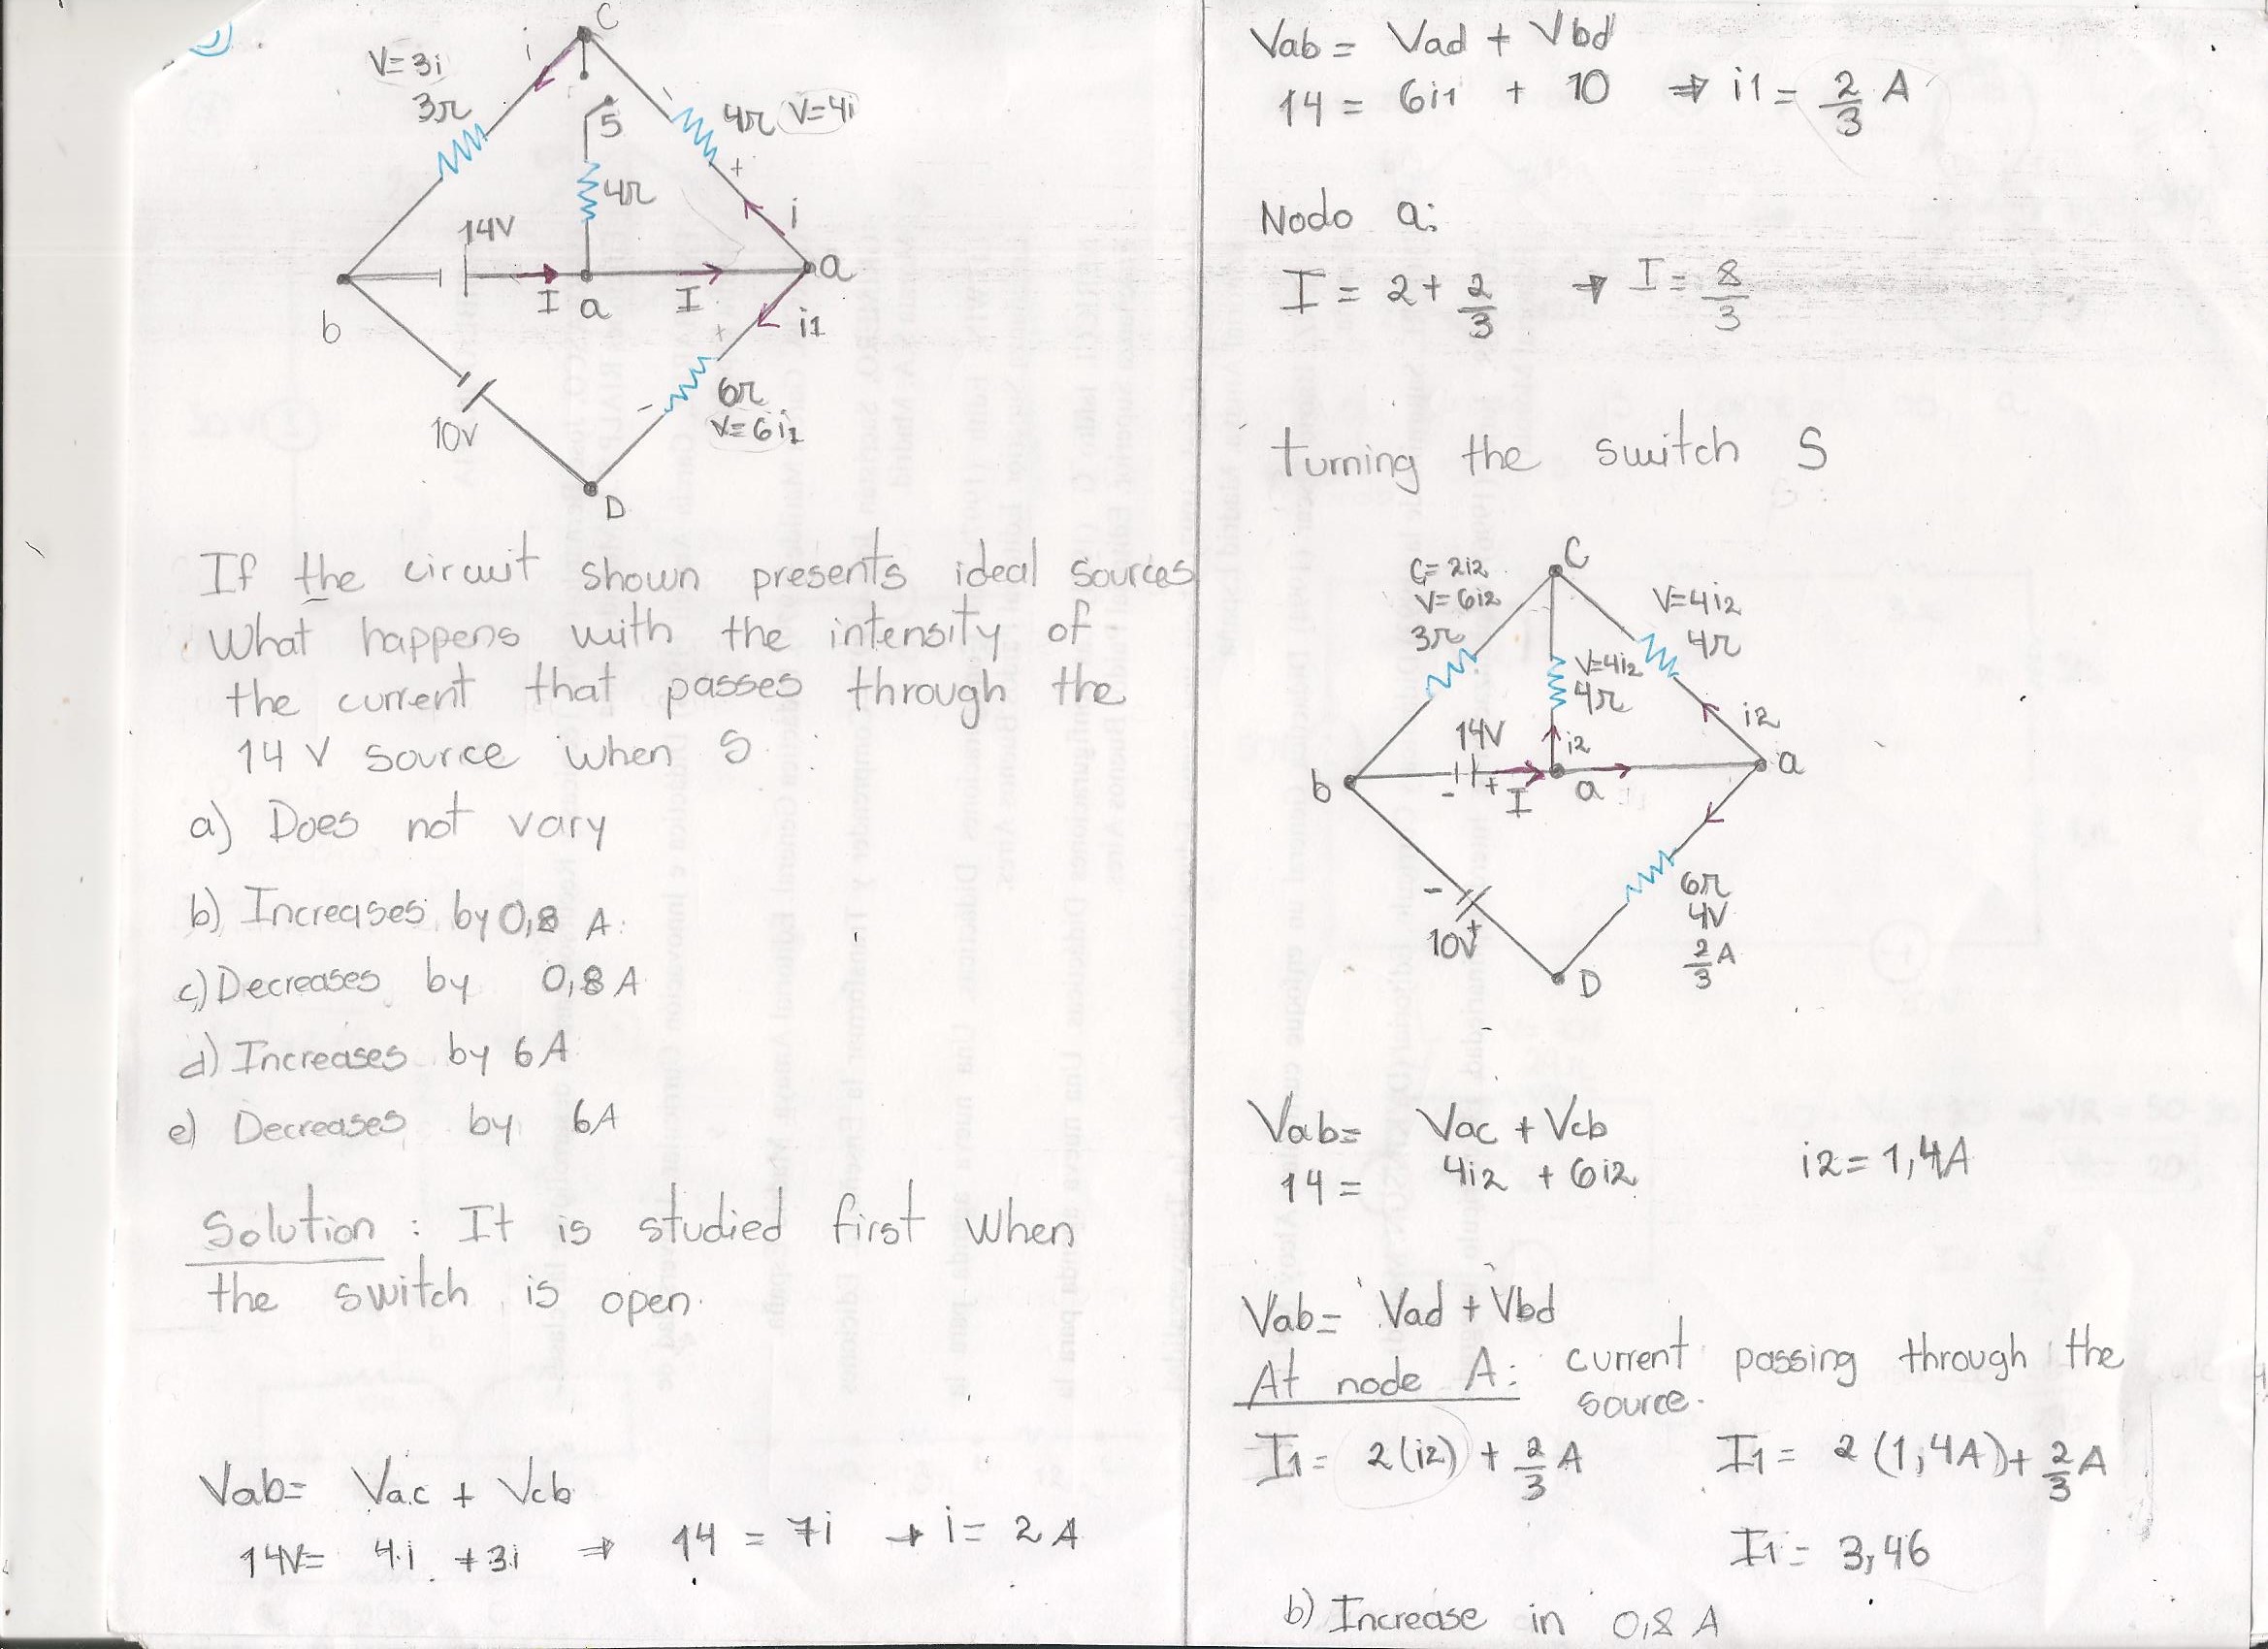 C
i
V=3i
3Ω
S
4Ω V=4i
4Ω
i
14V
a
I a I
i1
b
6Ω
V=6i1
10V
D
If the circuit shown presents ideal sources
What happens with the intensity of
the current that passes through the
14 V source when S
a) Does not vary
b) Increases by 0,8 A.
c) Decreases by 0,8 A
d) Increases by 6A
e) Decreases by 6A
Solution: It is studied first when
the switch is open.
Vab= Vac + Vcb
14V= 4i +3i ⇒ 14 = 7i → i= 2 A
Vab= Vad + Vbd
14 = 6i1 + 10 ⇒ i1 = 2/3 A
Nodo a:
I = 2 + 2/3 ⇒ I = 8/3
turning the switch S
C
C= 2i2
V= 6i2
3Ω
V=4i2
4Ω
V=4i2
4Ω
i2
14V
i2
b
- +
I
a
a
-
+
10V
6Ω
4V
2/3 A
D
Vab= Vac + Vcb
14 = 4i2 + 6i2 i2= 1,4A
Vab= Vad + Vbd
At node A: current passing through the
source.
I1= 2(i2) + 2/3 A I1= 2 (1,4A) + 2/3 A
I1= 3,46
b) Increase in 0,8 A